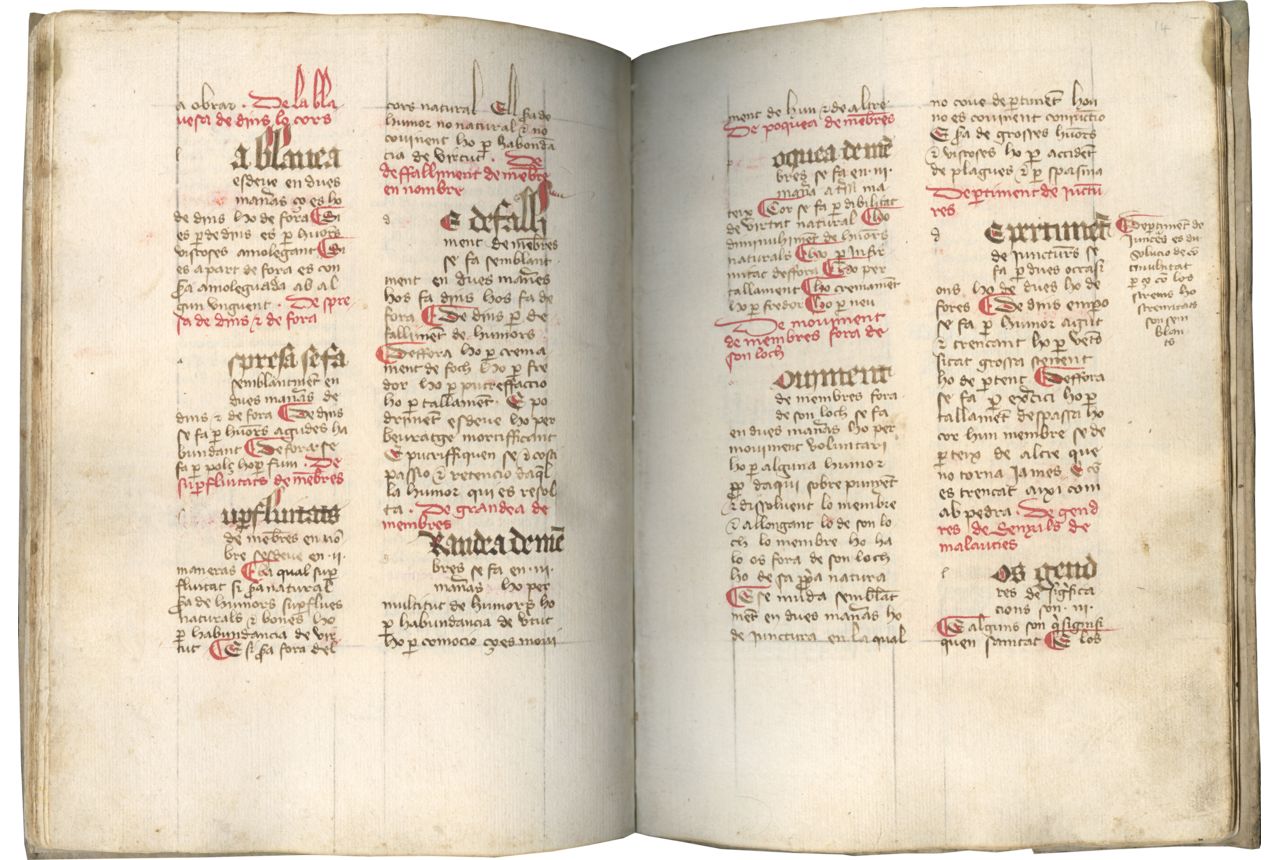 a obrar · De la bla
uesa de dins lo cors
a blauea
esdeue en dues
mañas ço es ho
de dins ho de fora Si
es per dedins es per humors
viscoses amolegant Si
es apart de fora es con
fra amoleguada ab al
gun vnguent · De spre
sa de dins & de fora
spresa se fa
semblantment en
dues mañas de
dins & de fora De dins
se fa per humors agudes ha
bundant De fora se
fa per pols ho per fum · De
superfluitats de membres
uperfluitats
de mēbres en no
bre sesdeue en ·ii·
maneras La qual sup
fluitat si fra natural
fra de humors supflues
naturals & bones ho
per habundancia de vir
tut E si fra fora del
cors natural Ell fra de
humor no natural & no
couinent ho per habonda
cia de virtut · De
deffalliment de mēbre
en nombre
E defalli
ment de mēbres
se fa semblant
ment en dues mañes
hos fa dins hos fa de
fora De dins per de
falliment de humors
Deffora ho per crema
ment de foch ho per fre
dor ho per putreffaccio
ho per tallament · E po
driment esdeue ho per
beuratge mortifficant
E putrifiquen se & costi
passio & retencio daql
la humor qui es resol
ta · De grandea de
membres
Randea de mē
bres se fa en ·iii·
mañas · ho per
multitut de humors ho
per habundancia de vtut
ho per comocio çoes moui
14
ment de hun & de altre
De poquea de mēbres
oquea de mē
bres se fa en ·iii·
maña
teix Cor se fa per dibilitat
de virtut natural Cho
diminuhiment de humors
naturals Cho per infir
mitat deffora Cho per
tallament Cho cremament
ho per fredor Cho per neu
De mouiment
de membres fora de
son loch
ouiment
de membres fora
de son loch se fa
en dues mañas ho per
mouiment voluntari
ho per alguna humor
daqui sobre
& dissoluent lo membre
& allongant lo de son lo
ch lo membre ho ha
lo os fora de son loch
ho de sa ppa natura
E se muda semblāt
ment en dues mañas ho
de iunctura en la qual
no coue depertiment hon
no es couinent coniuctio
E fra de grosses humors
& viscoses ho per accidēt
de plagues & per spasma
De pertiment de iunctu
res
E pertiment
de iuncturs se
fa per dues occasi
ons ho de dues ho de
fores De dins empo
se fa per humor agut
& trencant ho per vento
sitat grossa stenent
ho de pertent Deffora
se fa per exercici ho per
tallament despassa ho
cor hun membre se de
perteix de altre que
no torna iames E com
es trencat axi com
ab pedra · De gend
res de senyals de
malauties
os gend
res de significa
cions son ·iii·
E alguns son que signifi
quen sanitat E los
Depertiment de
iunctes es di
solucio de co
tinuhitat
per ço co los
strems ho
stremitats
son sem
blan
ts